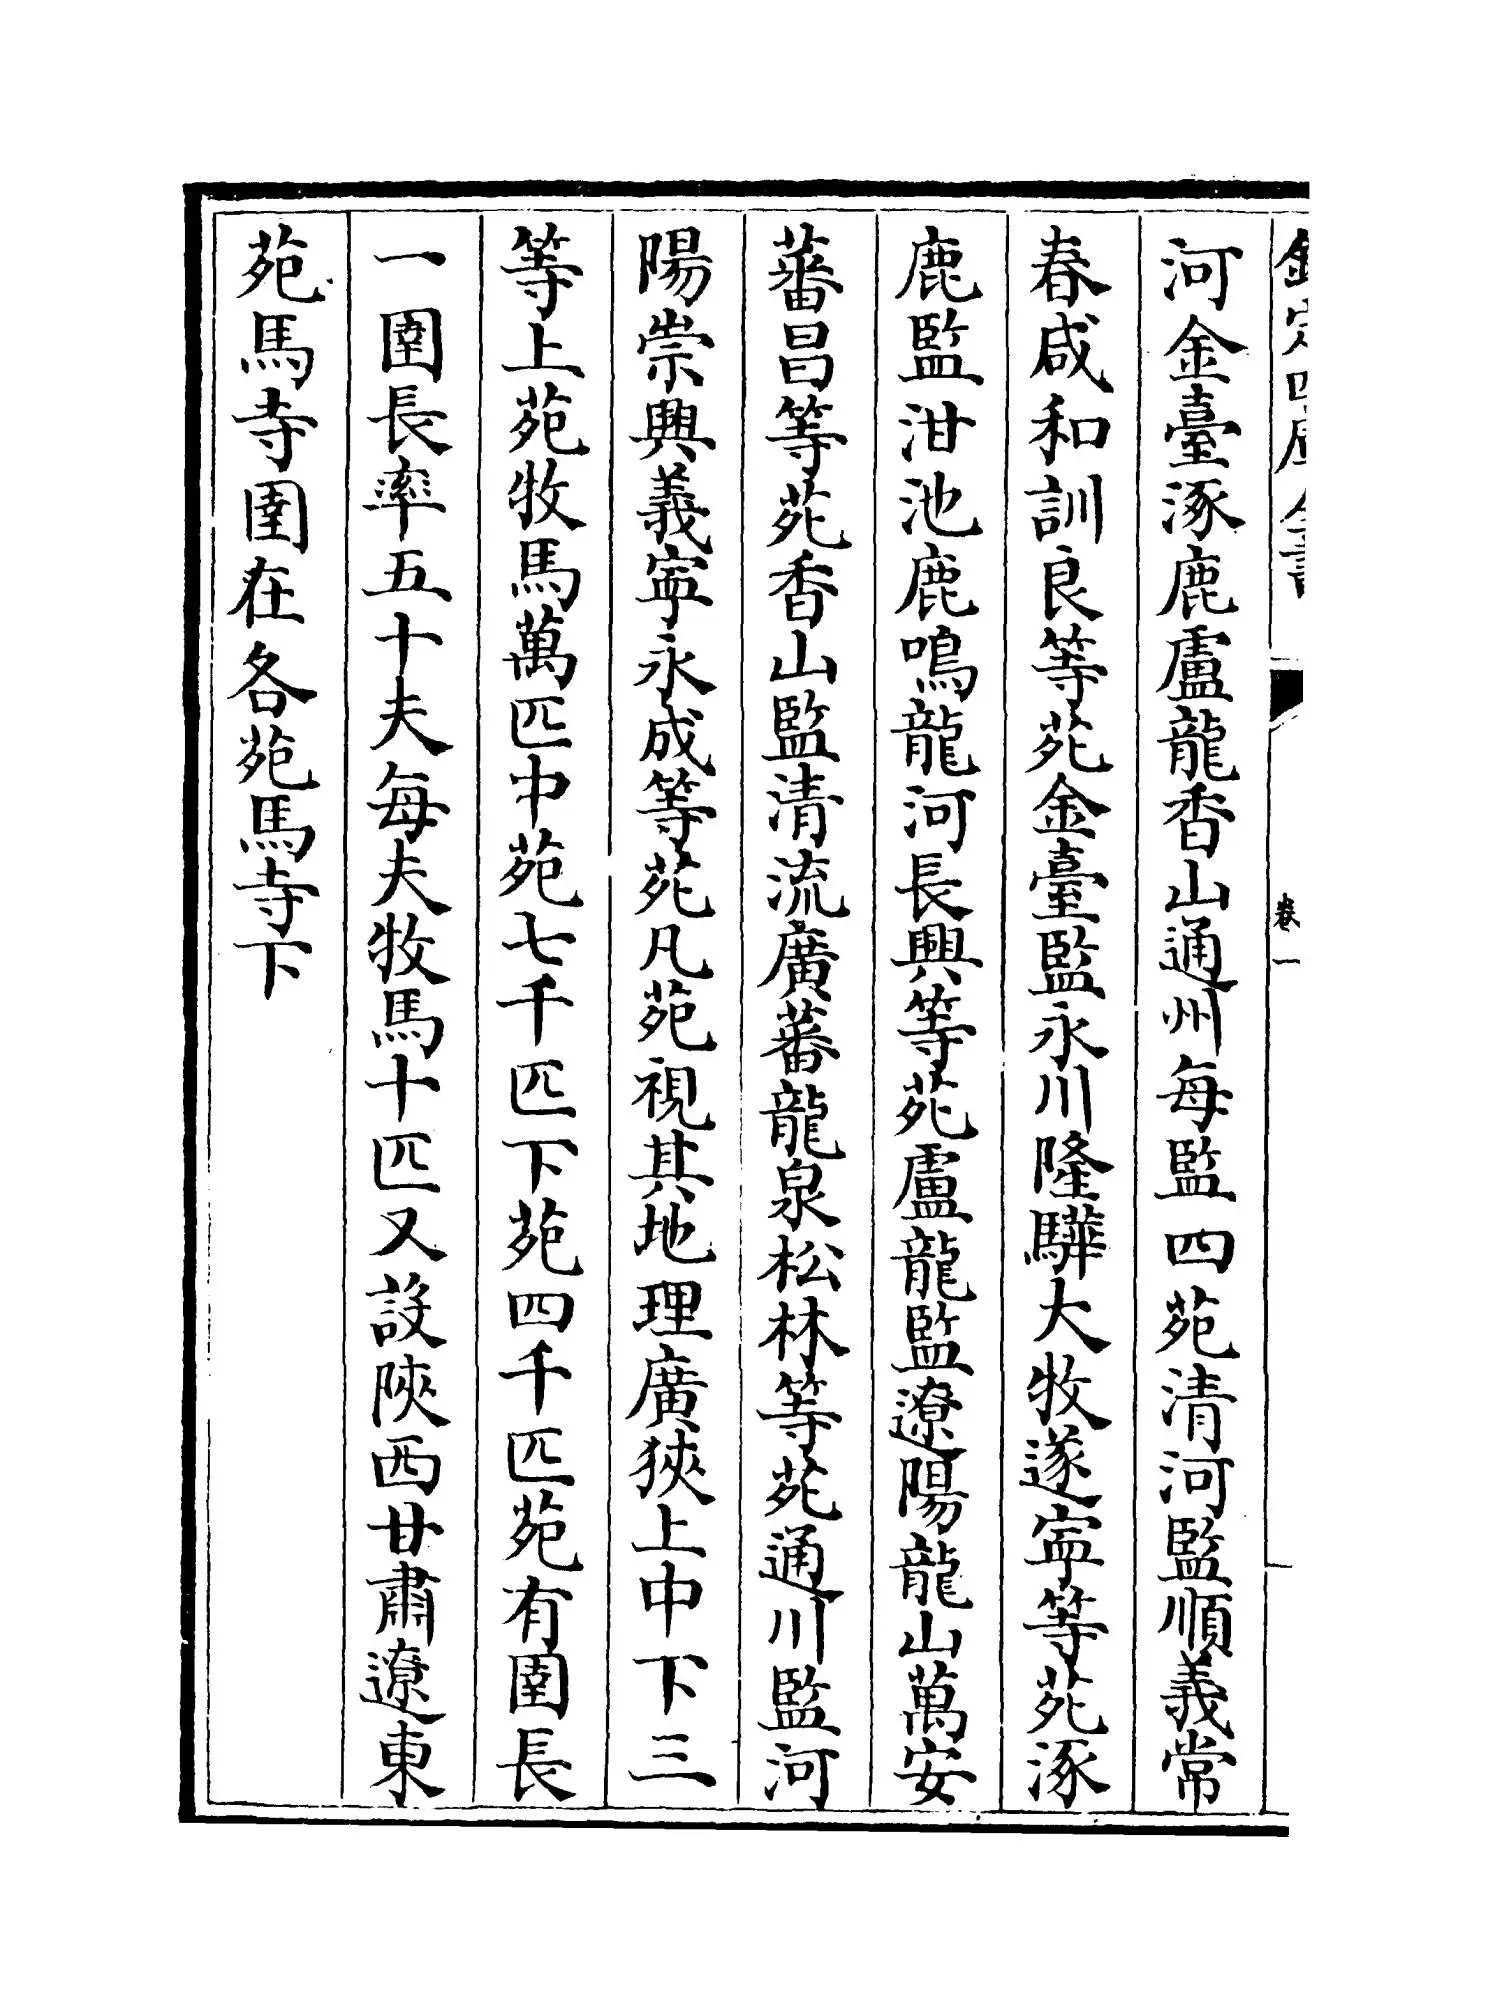 欽定四庫全書
卷一
河金臺涿鹿盧龍香山通州每監四苑清河監順義常
春咸和訓良等苑金臺監永川隆驊大牧遂寧等苑涿
鹿監泔池鹿鳴龍河長興等苑盧龍監遼陽龍山萬安
蕃昌等苑香山監清流廣蕃龍泉松林等苑通川監河
陽崇興義寧永成等苑凡苑視其地理廣狹上中下三
等上苑牧馬萬匹中苑七千匹下苑四千匹苑有圉長
一圉長率五十夫每夫牧馬十匹又設陝西甘肅遼東
苑馬寺圉在各苑馬寺下